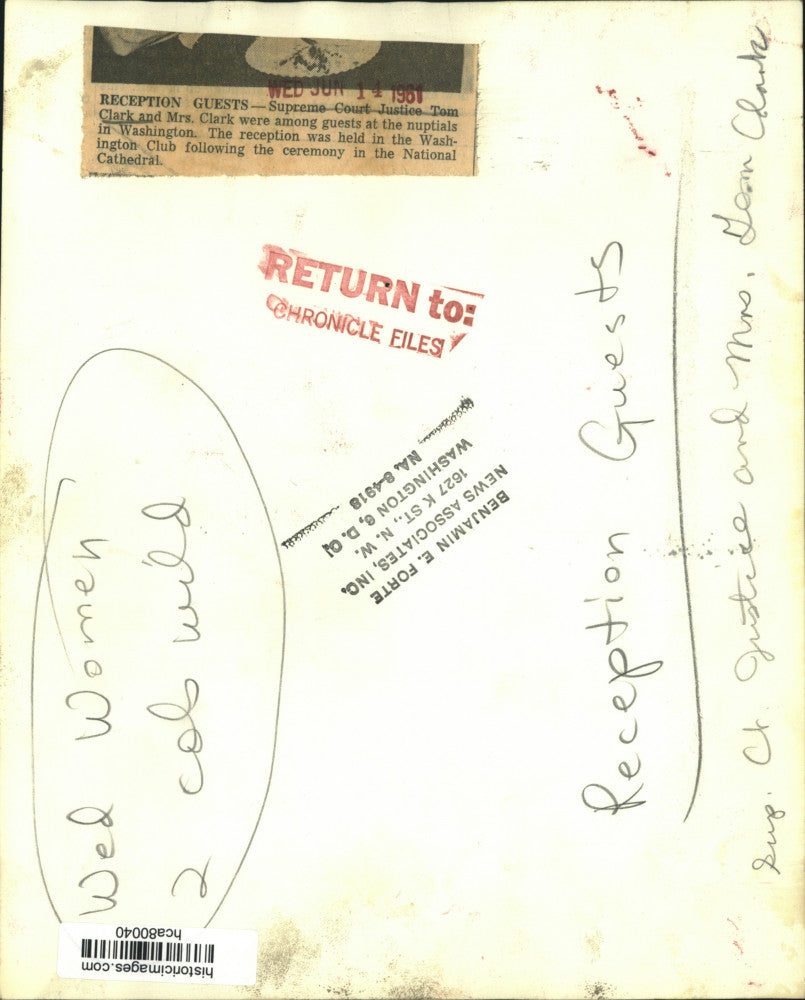 WED JUN 14 1961
RECEPTION GUESTS — Supreme Court Justice Tom
Clark and Mrs. Clark were among guests at the nuptials
in Washington. The reception was held in the Wash-
ington Club following the ceremony in the National
Cathedral.
RETURN to:
CHRONICLE FILES
BENJAMIN E. FORTE
NEWS ASSOCIATES, INC.
1627 K ST., N. W.
WASHINGTON 6, D. C.
NA. 8-4918
Reception Guests
Sup. Ct. Justice and Mrs. Tom Clark
Wed Women
2 cols wild
historicimages.com
hca80040